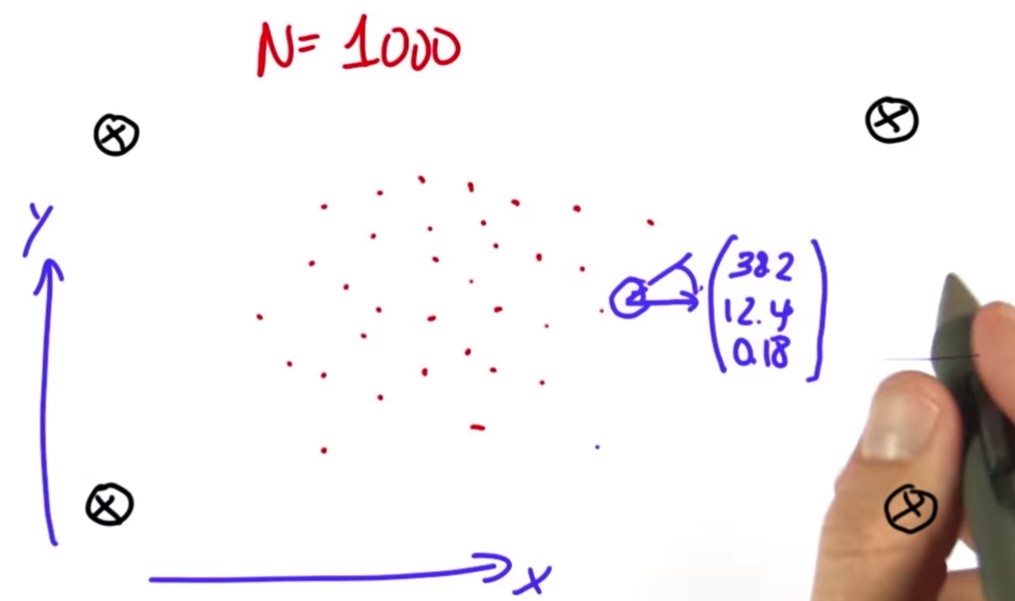 N= 1000
Y
38.2
12.4
0.18
X